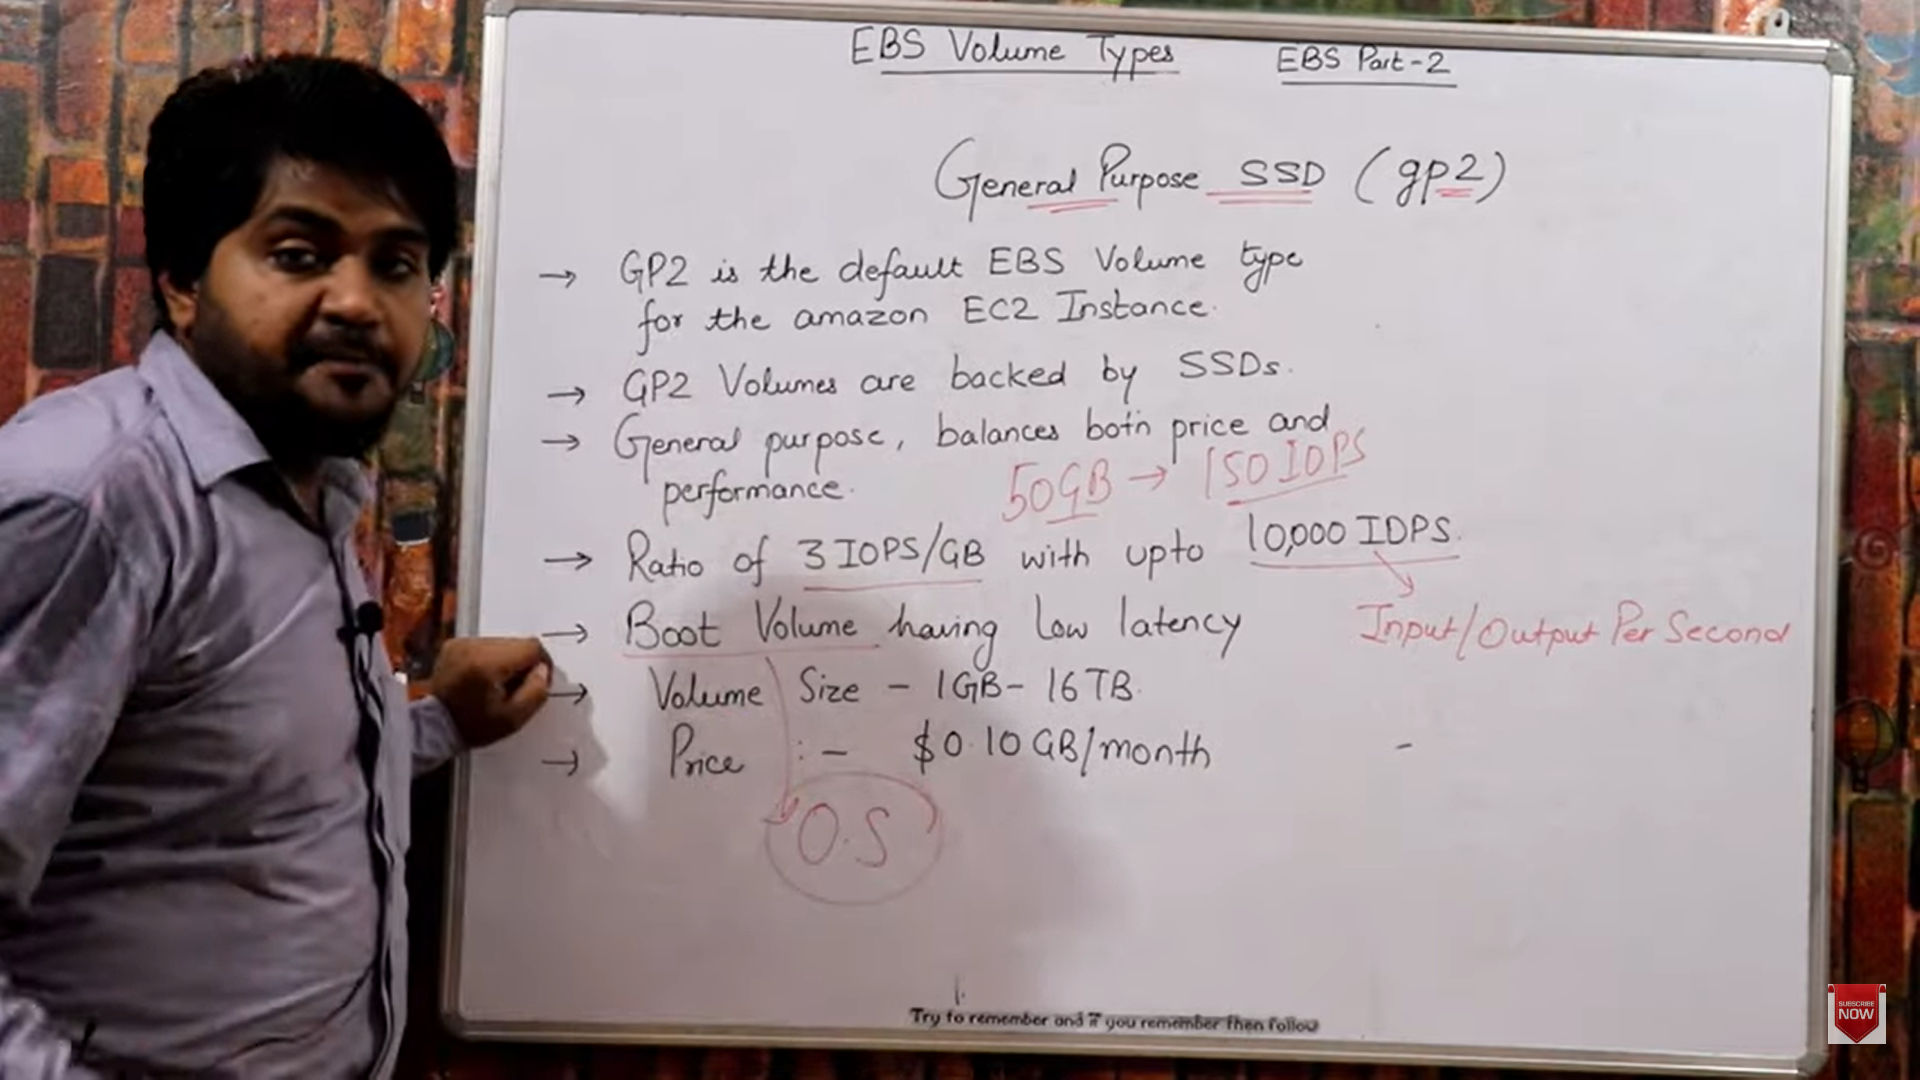 EBS Volume Types EBS Part-2
General Purpose SSD (gp2)
→ GP2 is the default EBS Volume type
for the amazon EC2 Instance.
→ GP2 Volumes are backed by SSDs.
→ General purpose, balances both price and
performance.
50GB → 150 IOPS
→ Ratio of 3 IOPS/GB with upto 10,000 IOPS.
Input/Output Per Second
→ Boot Volume having low latency
→ Volume Size - 1GB- 16TB.
→ Price :- $0.10 GB/month
O.S
Try to remember and if you remember then follow
SUBSCRIBE
NOW